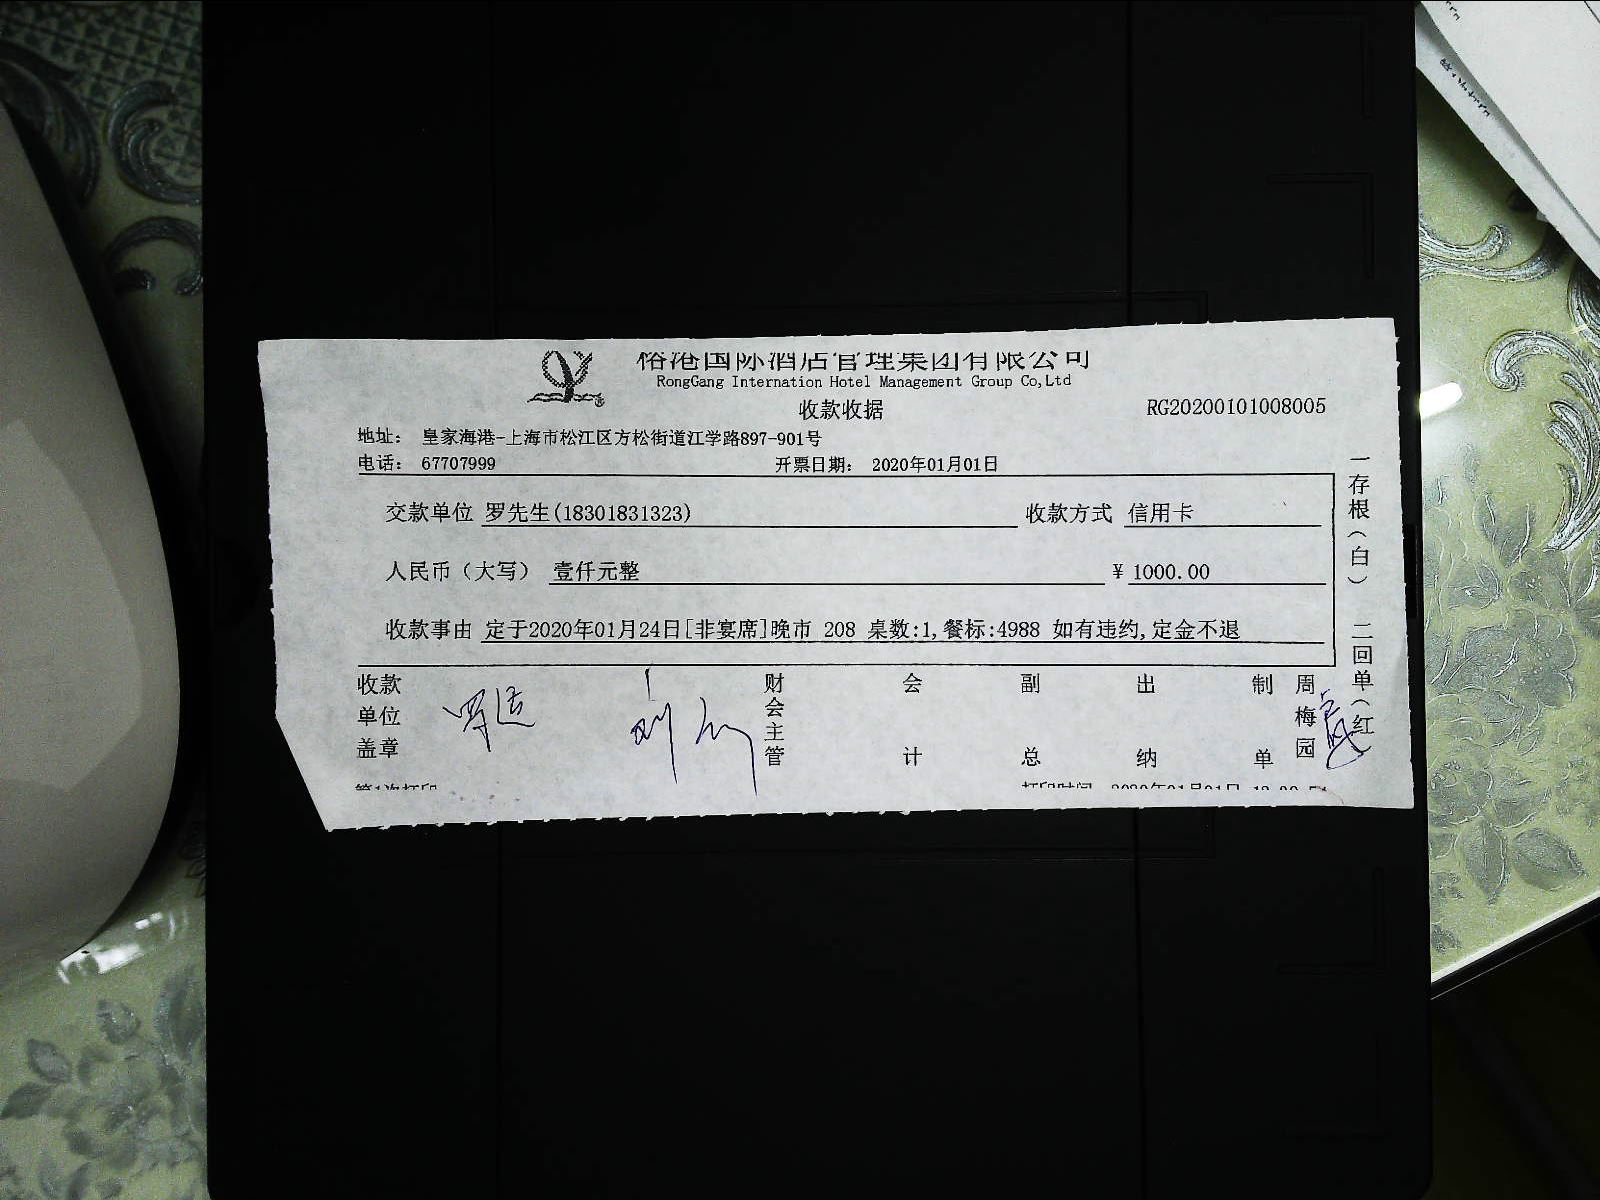 俗港国际酒店管理集团有限公司
RongGang Internation Hotel Management Group Co,Ltd
收款收据
RG20200101008005
地址： 皇家海港-上海市松江区方松街道江学路897-901号
电话： 67707999 开票日期： 2020年01月01日
交款单位 罗先生(18301831323) 收款方式 信用卡
人民币（大写） 壹仟元整 ¥ 1000.00
收款事由 定于2020年01月24日[非宴席]晚市 208 桌数:1,餐标:4988 如有违约,定金不退
收款单位盖章 财会主管 会计 副总 出纳 制单 周梅园
一存根（白） 二回单（红
第1次打印 打印时间 2020年01月01日